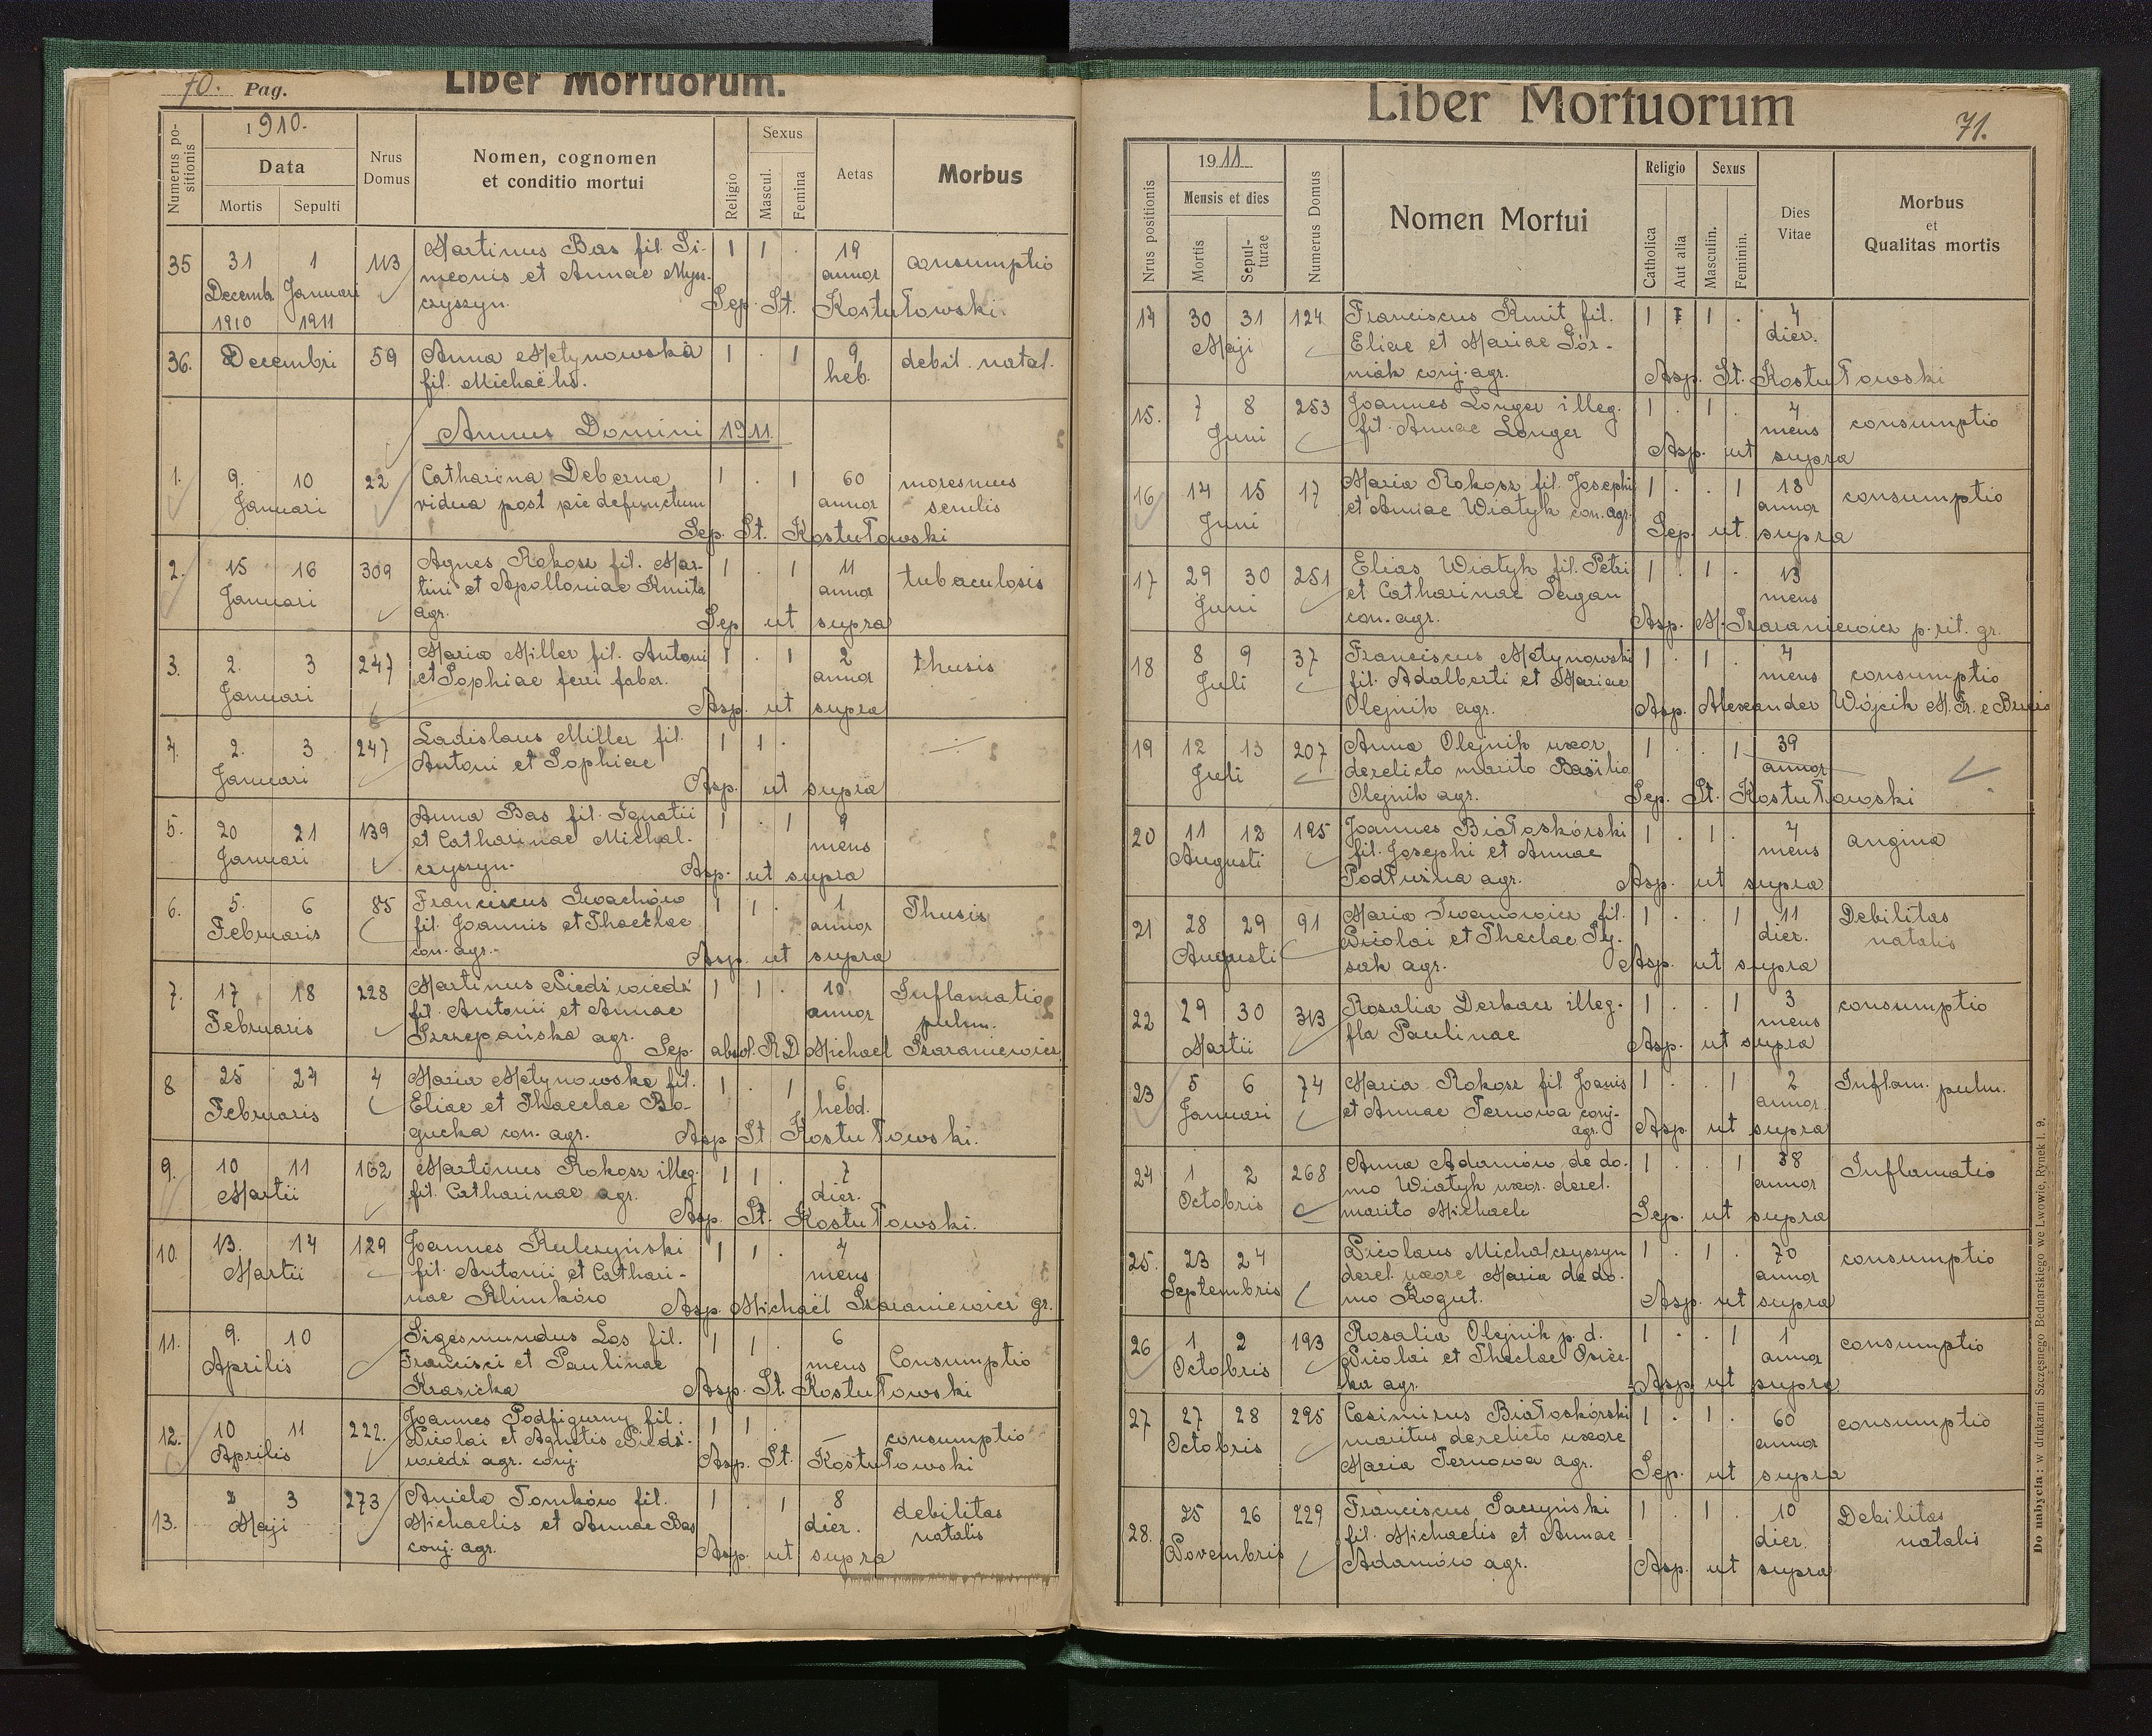 70. Pag.
Liber Mortuorum.
Numerus positionis
1910.
Data
Mortis Sepulti
Nrus Domus
Nomen, cognomen et conditio mortui
Religio
Sexus
Mascul. Femina
Aetas
Morbus
35 31 1 113 Martinus Bas fil. Si- 1 1 . 19 consumptio
Decemb. Januari meonis et Annae Mysz- annor
1910 1911 czyszyn. Sep. St. Kostułowski.
36. Decembri 59 Anna Metynowska 1 . 1 9 debil. natal.
fil. Michaëlis. heb.
Annus Domini 1911
1. 9. 10 22 Catharina Deberna 1 . 1 60 maresmus
Januari vidua post pie defunctum annor senilis
Sep. St. Kostułowski
2. 15 16 309 Agnes Rokosz fil. Mar- 1 . 1 11 tubaculosis
Januari tini et Apolloniae Kmita annor
agr. Sep ut supra
3. 2. 3 247 Maria Miller fil. Antoni 1 . 1 2 thusis
Januari et Sophiae ferri faber. annor
Asp. ut supra
4. 2. 3 247 Ladislaus Miller fil. 1 1 .
Januari Antoni et Sophiae
Asp. ut supra
5. 20 21 139 Anna Bas fil. Ignatii 1 . 1 9
Januari et Catharinae Michal- mens
czyszyn. Asp. ut supra
6. 5. 6 85 Franciscus Iwachów 1 1 . 1 Thusis
Februaris fil. Joannis et Thaeclae annor
con. agr. Asp. ut supra
7. 17 18 228 Martinus Niedźwiedź 1 1 . 10 Inflamatio
Februaris fil. Antonii et Annae annor pulm.
Szczepańska agr. Sep. absol. R.D Michael Szaraniewicz
8 25 27 4 Maria Metynowska fil. 1 . 1 6
Februaris Eliae et Thaeclae Bo- hebd.
gucka con. agr. Asp St Kostułowski.
9. 10 11 162 Martinus Rokosz illeg. 1 1 . 7
Martii fil. Catharinae agr. dier.
Asp. St. Kostułowski.
10. 13. 14 129 Joannes Kulczyński 1 1 . 4
Martii fil. Antonii et Cathari- mens
nae Klimków Asp. Michaël Szaraniewicz gr.
11. 9. 10 Sigesmundus Los fil. 1 1 . 6
Aprilis Francisci et Paulinae mens Consumptio
Krasicka Asp. St. Kostułowski
12. 10 11 222. Joannes Podfigurny fil. 1 1 . — consumptio
Aprilis Nicolai et Agnetis Niedź-
wiedź agr. conj. Asp. St. Kostułowski
13. 2 3 273 Aniela Tomków fil. 1 . 1 8 debilitas
Maji Michaelis et Annae Bas dier. natalis
conj. agr. Asp. ut supra
Liber Mortuorum
71.
Nrus positionis
1911
Mensis et dies
Mortis Sepulturae
Numerus Domus
Nomen Mortui
Religio
Catholica Aut alia
Sexus
Masculin. Feminin.
Dies Vitae
Morbus
et
Qualitas mortis
14 30 31 124 Franciscus Kmit fil. 1 1 . 4
Maji Eliae et Mariae Gór- dier.
niak conj. agr. Asp. St. Kostułowski
15. 7 8 253 Joannes Longer illeg. 1 . 1 . 4 consumptio
Juni fil. Annae Longer mens
Asp. ut supra
16 14 15 17 Maria Rokosz fil. Josephi 1 . . 1 18 consumptio
Juni et Anniae Wiatyk con. agr. annor
Sep. ut supra
17 29 30 251 Elias Wiatyk fil. Petri 1 . 1 . 13
Juni et Catharinae Sergan mens
con. agr. Asp. M. Szaraniewicz p. rit. gr.
18 8 9 37 Franciscus Metynowski 1 . 1 . 4 consumptio
Juli fil. Adalberti et Mariae mens
Olejnik agr. Asp. Alexander Wójcik
19 12 13 207 Anna Olejnik uxor 1 . . 1 39
Juli derelicto marito Basilio annor
Olejnik agr. Sep. St. Kostułowski
20 11 12 195 Joannes Białoskórski 1 . 1 . 4 angina
Augusti fil. Josephi et Annae mens
Podłużna agr. Asp. ut supra
21 28 29 91 Maria Iwanowicz fil. 1 . . 1 11 Debilitas
Augusti Nicolai et Theclae Ry- dier. natalis
sak agr. Asp. ut supra
22 29 30 313 Rosalia Derkacz illeg. 1 . . 1 3 consumptio
Martii fla Paulinae mens
Asp. ut supra
23 5 6 74 Maria Rokosz fil Joanis 1 . . 1 2 Inflam. pulm.
Januari et Annae Ternowa conj- annor
agr. Asp. ut supra
24 1 2 268 Anna Adamów de do- 1 . . 1 38 Inflamatio
Octobris mo Wiatyk uxor. derel. annor
marito Michaele Sep. ut supra
25. 23 24 Nicolaus Michalczyszyn 1 . 1 . 70 consumptio
Septembris derel. uxore Maria de do- annor
mo Kogut. Asp. ut supra
26 1 2 193 Rosalia Olejnik p. d. 1 . . 1 1 consumptio
Octobris Nicolai et Theclae annor
agr. Asp. ut supra
27 27 28 295 Casimirus Białoskórski 1 . 1 . 60 consumptio
Octobris maritus derelicto uxore annor
Maria Ternowa agr. Sep. ut supra
28. 25 26 229 Franciscus Saczyński 1 . 1 . 10 Debilitas
Novembris fil. Michaelis et Annae dier. natalis
Adamów agr. Asp. ut supra
Do nabycia: w drukarni Szczęsnego Bednarskiego we Lwowie, Rynek l. 9.